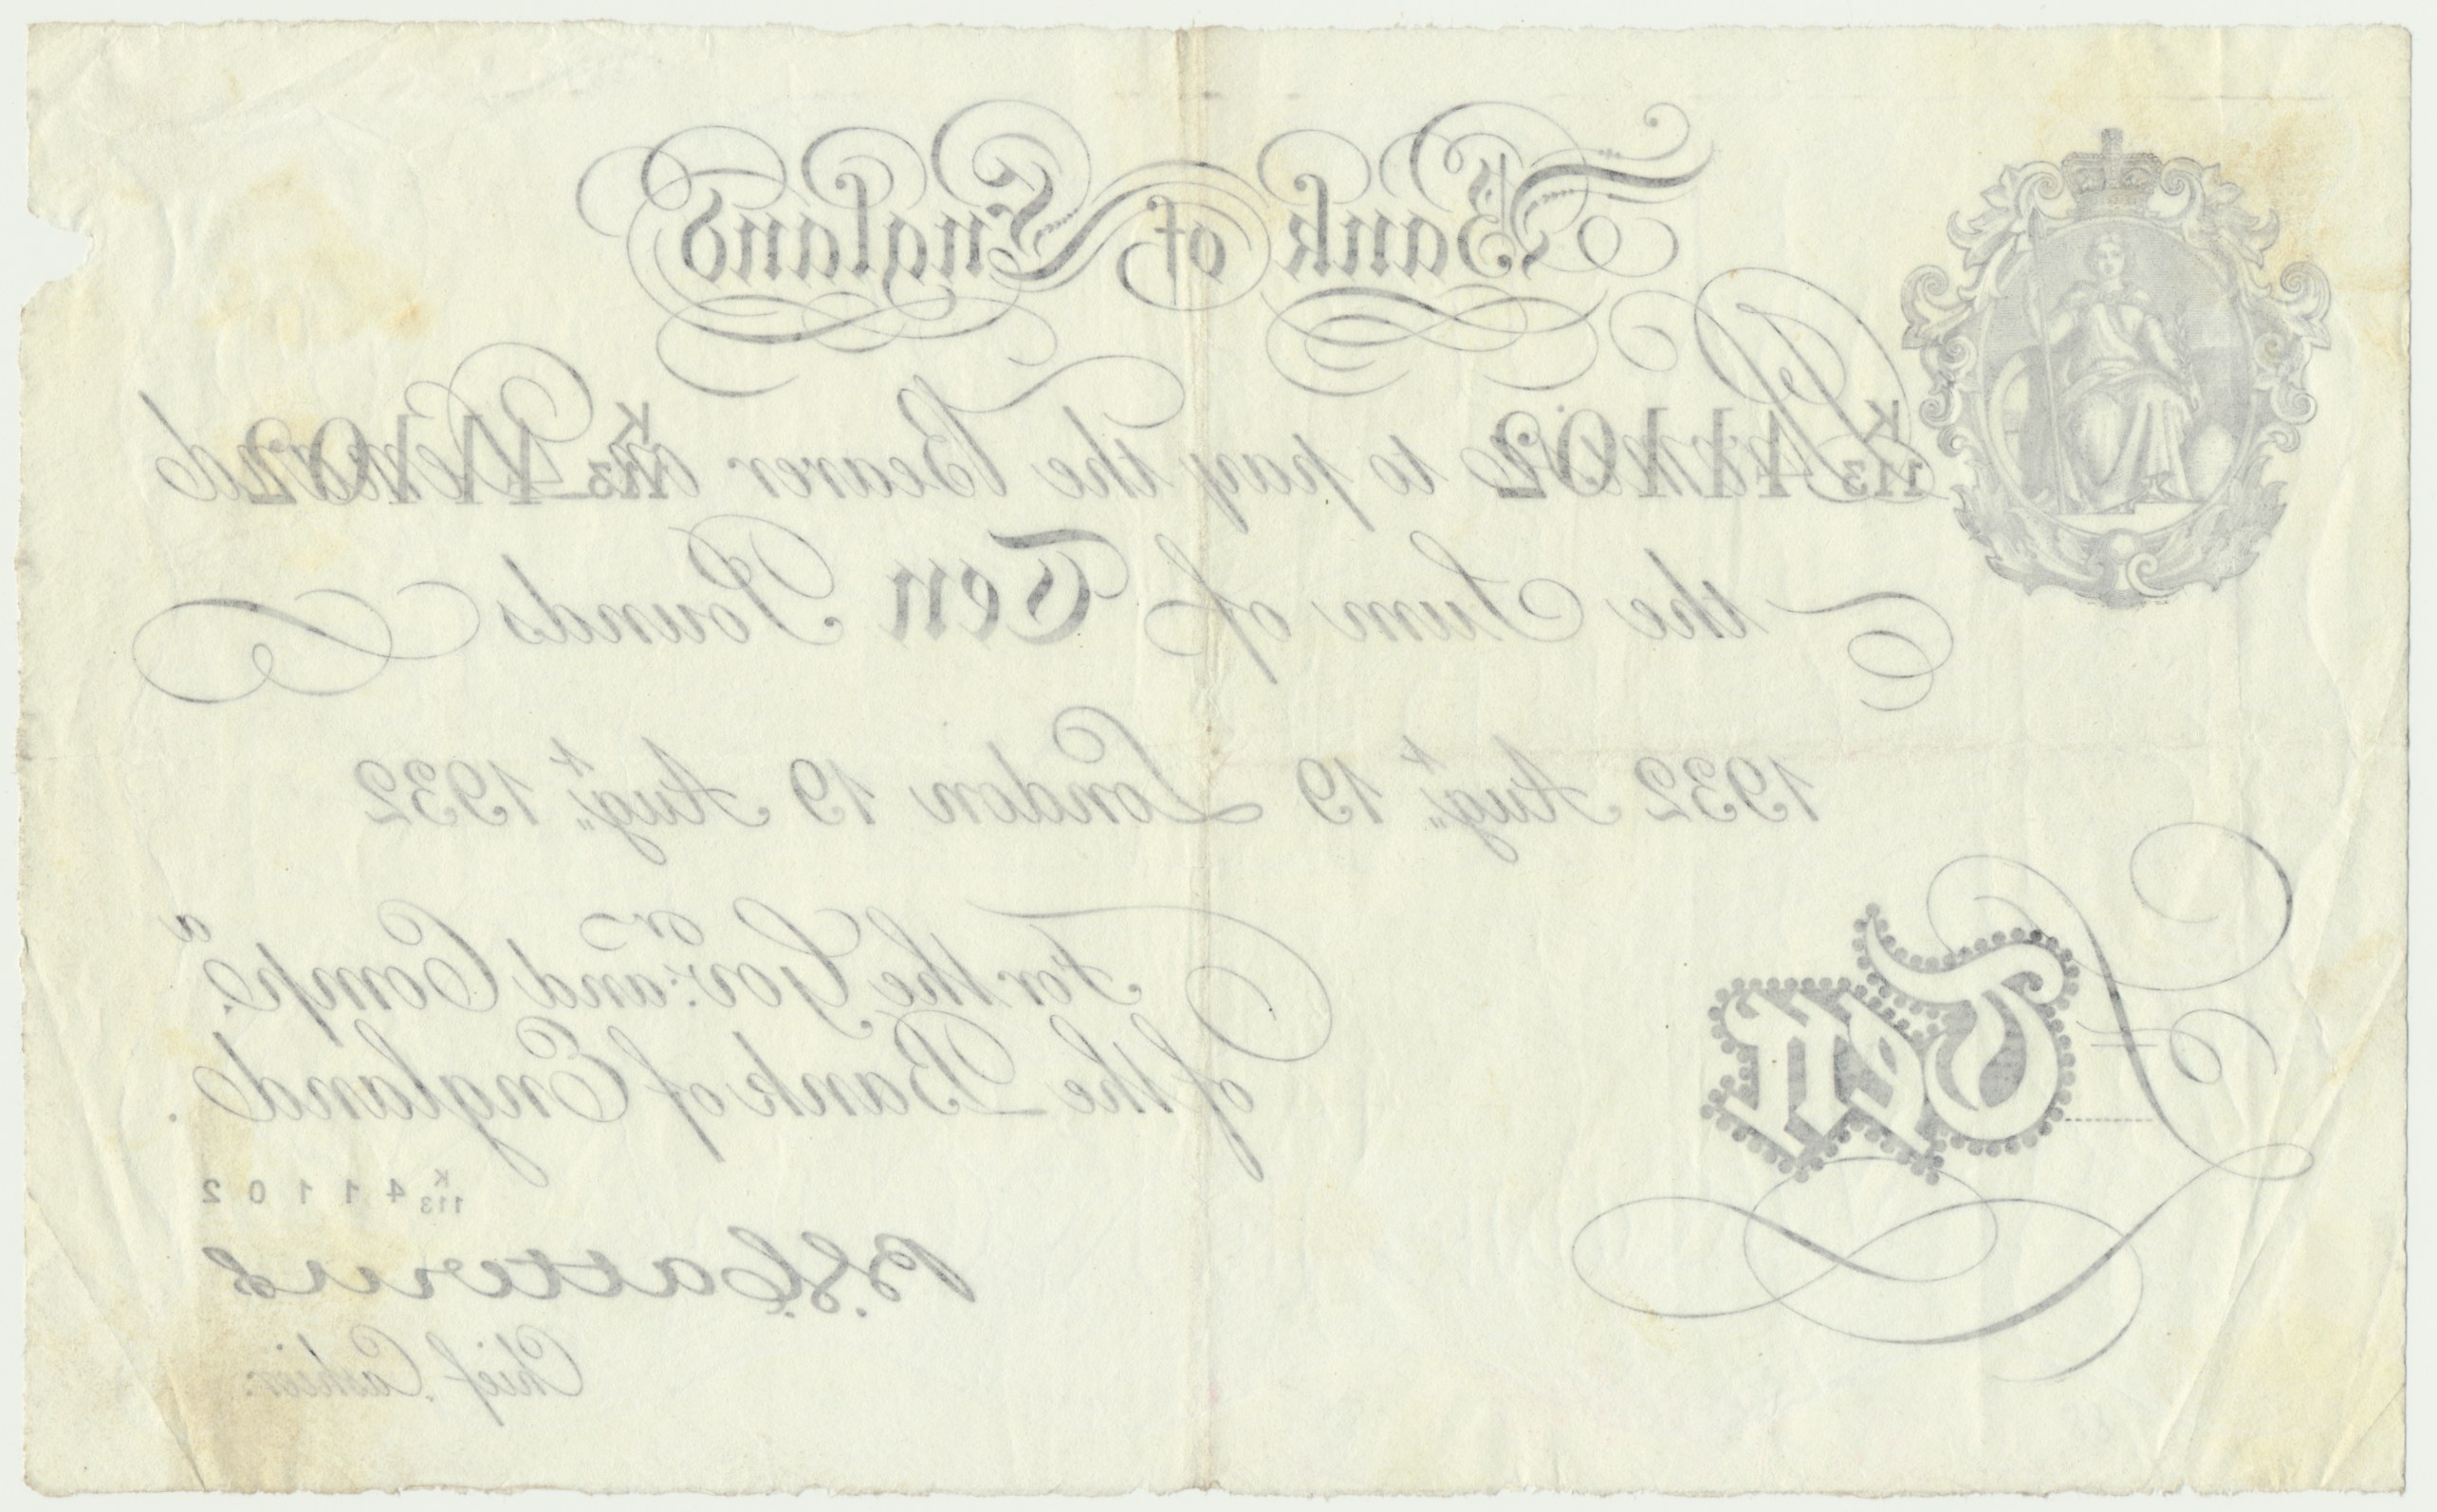 Bank of England
K 113 41102 Promise to pay the Bearer on Demand K 113 41102
the Sum of Ten Pounds
1932 Augt 19 London 19 Augt 1932
For the Govr: and Compa.
of the Bank of England.
K 113 41102
Ten
B.G. Catterns
Chief Cashier.